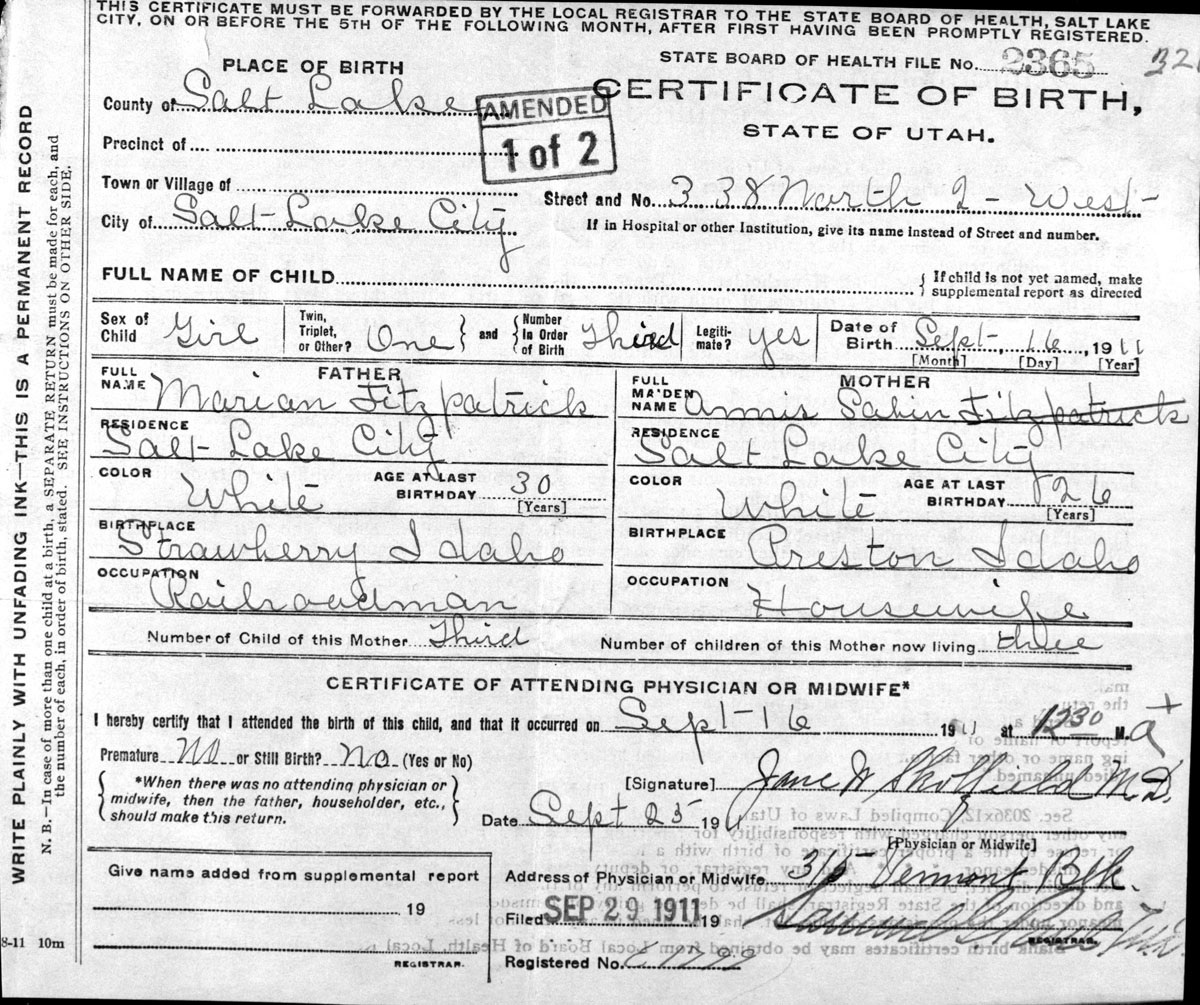 THIS CERTIFICATE MUST BE FORWARDED BY THE LOCAL REGISTRAR TO THE STATE BOARD OF HEALTH, SALT LAKE
CITY, ON OR BEFORE THE 5TH OF THE FOLLOWING MONTH, AFTER FIRST HAVING BEEN PROMPTLY REGISTERED.
WRITE PLAINLY WITH UNFADING INK—THIS IS A PERMANENT RECORD
N. B.—In case of more than one child at a birth, a SEPARATE RETURN must be made for each, and
the number of each, in order of birth, stated. SEE INSTRUCTIONS ON OTHER SIDE.
STATE BOARD OF HEALTH FILE No. 2365
PLACE OF BIRTH
CERTIFICATE OF BIRTH,
STATE OF UTAH.
County of Salt Lake
AMENDED
1 of 2
Precinct of
Town or Village of
Street and No. 338 North 2 - West -
City of Salt-Lake City
If in Hospital or other Institution, give its name instead of Street and number.
FULL NAME OF CHILD
{ If child is not yet named, make
supplemental report as directed
Sex of Child Girl
Twin, Triplet, or Other? One } and { Number in Order of Birth Third
Legiti-mate? yes
Date of Birth Sept-, 16, 1911
[Month] [Day] [Year]
FATHER
FULL NAME Marian Fitzpatrick
MOTHER
FULL MAIDEN NAME Annis Sabin Fitzpatrick
RESIDENCE
Salt-Lake City
RESIDENCE
Salt Lake City
COLOR White AGE AT LAST BIRTHDAY 30 [Years]
COLOR White AGE AT LAST BIRTHDAY 26 [Years]
BIRTHPLACE
Strawberry Idaho
BIRTHPLACE Preston Idaho
OCCUPATION
Railroadman
OCCUPATION
Housewife
Number of Child of this Mother Third
Number of children of this Mother now living three
CERTIFICATE OF ATTENDING PHYSICIAN OR MIDWIFE*
I hereby certify that I attended the birth of this child, and that it occurred on Sept-16 1911 at 1230 A M.
Premature No or Still Birth? No. (Yes or No)
{ *When there was no attending physician or
midwife, then the father, householder, etc.,
should make this return. }
[Signature] Jane W Skolfield M.D.
Date Sept 25 191
[Physician or Midwife]
Give name added from supplemental report
19
REGISTRAR.
Address of Physician or Midwife Vermont Blk.
Filed SEP 29 1911 19
REGISTRAR.
Registered No.
8-11 10m